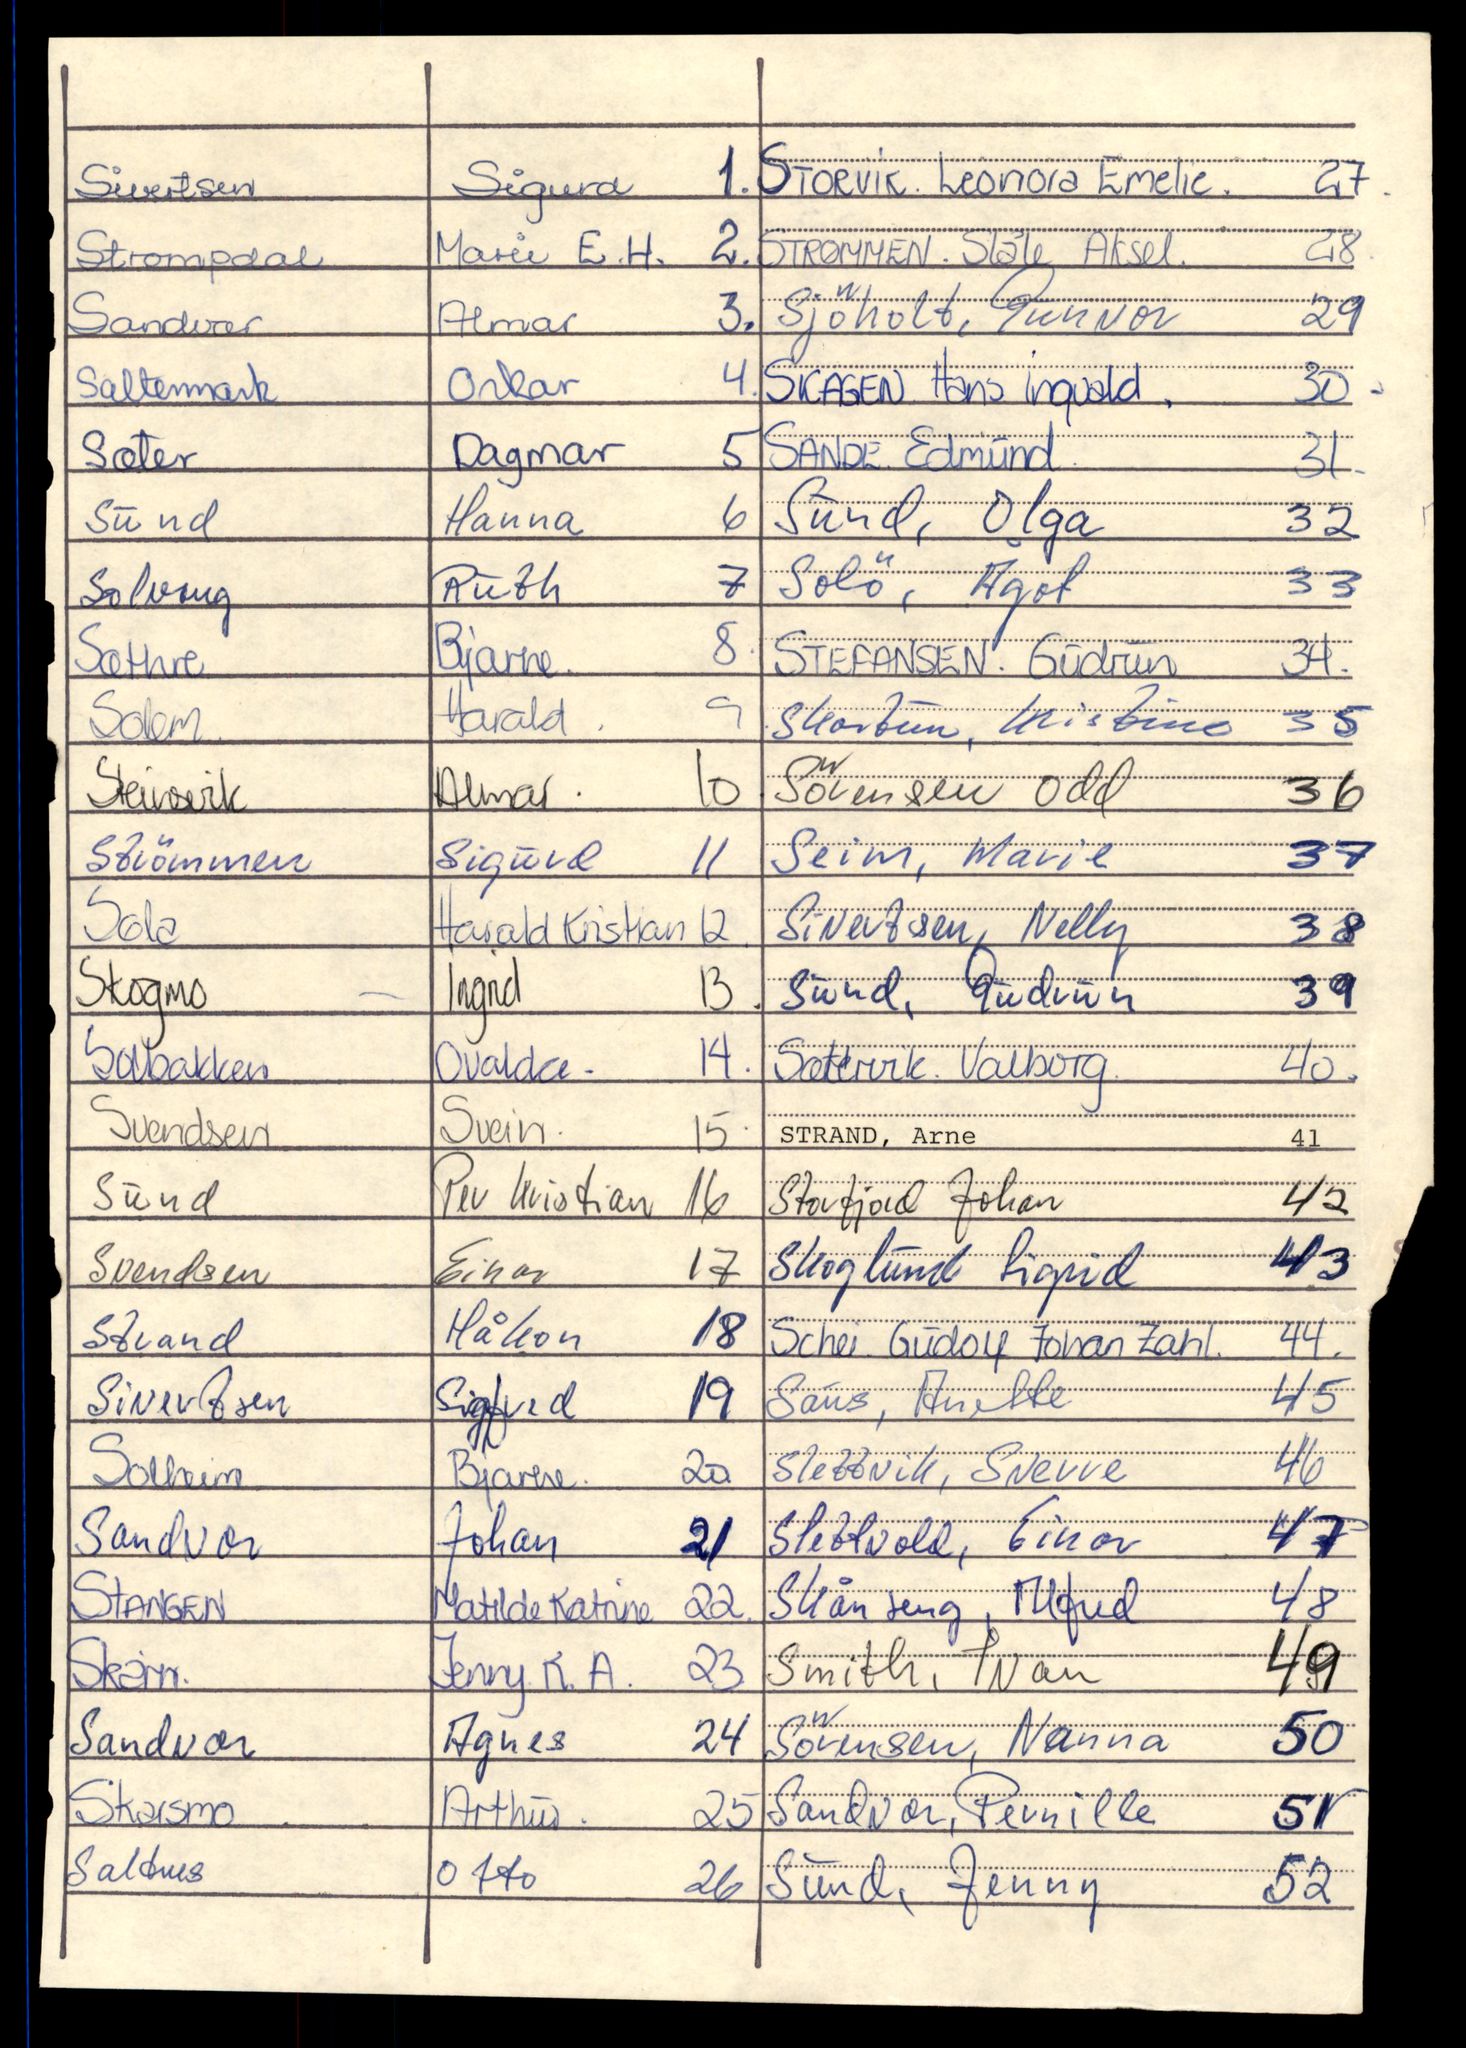 Sivertsen Sigurd 1. STORVIK. Leonora Emelie. 27.
Strompdal Marie E.H. 2. STRØMMEN. Ståle Aksel. 28.
Sandvær Almar 3. Sjöholt, Gunnor 29
Saltermark Oskar 4. SKAGEN Hans ingvald. 30
Sæter Dagmar 5 SANDE. Edmund. 31
Sund Hanna 6 Sund, Olga 32
Solvang Ruth 7 Solö, Ågot 33
Sæthre Bjarne. 8. STEFANSEN. Gudrun 34.
Solem. Harald. 9 Skartun, Kristine 35
Steinsvik Almar. 10 Sörensen Odd 36
Strömmen Sigurd 11 Seim, Marie 37
Sola Harald Kristian 12. Sivertsen, Nelly 38
Skogmo Ingrid 13. Sund, Gudrun 39
Solbakken Ovalda. 14. Sætervik. Valborg. 40.
Svendsen Svein. 15. STRAND, Arne 41
Sund Per Kristian 16 Storfjord Johan 42
Svendsen Einar 17 Skoglund Sigrid 43
Strand Håkon 18 Schei. Gudolf Johan Zahl. 44.
Sivertsen Sigfred 19 Saus, Anette 45
Solheim Bjarne. 20. Slettvik, Sverre 46
Sandvær Johan 21 Slettvold, Einar 47
STANGEN Matilde Katrine 22. Skånseng, Alfred 48
Skam. Jenny. K. A. 23. Smith, Ivan 49
Sandvær Agnes 24 Sörensen, Nanna 50
Skarsmo Arthur. 25 Sandvær, Pernille 51
Saltnes Otto 26 Sund, Jenny 52